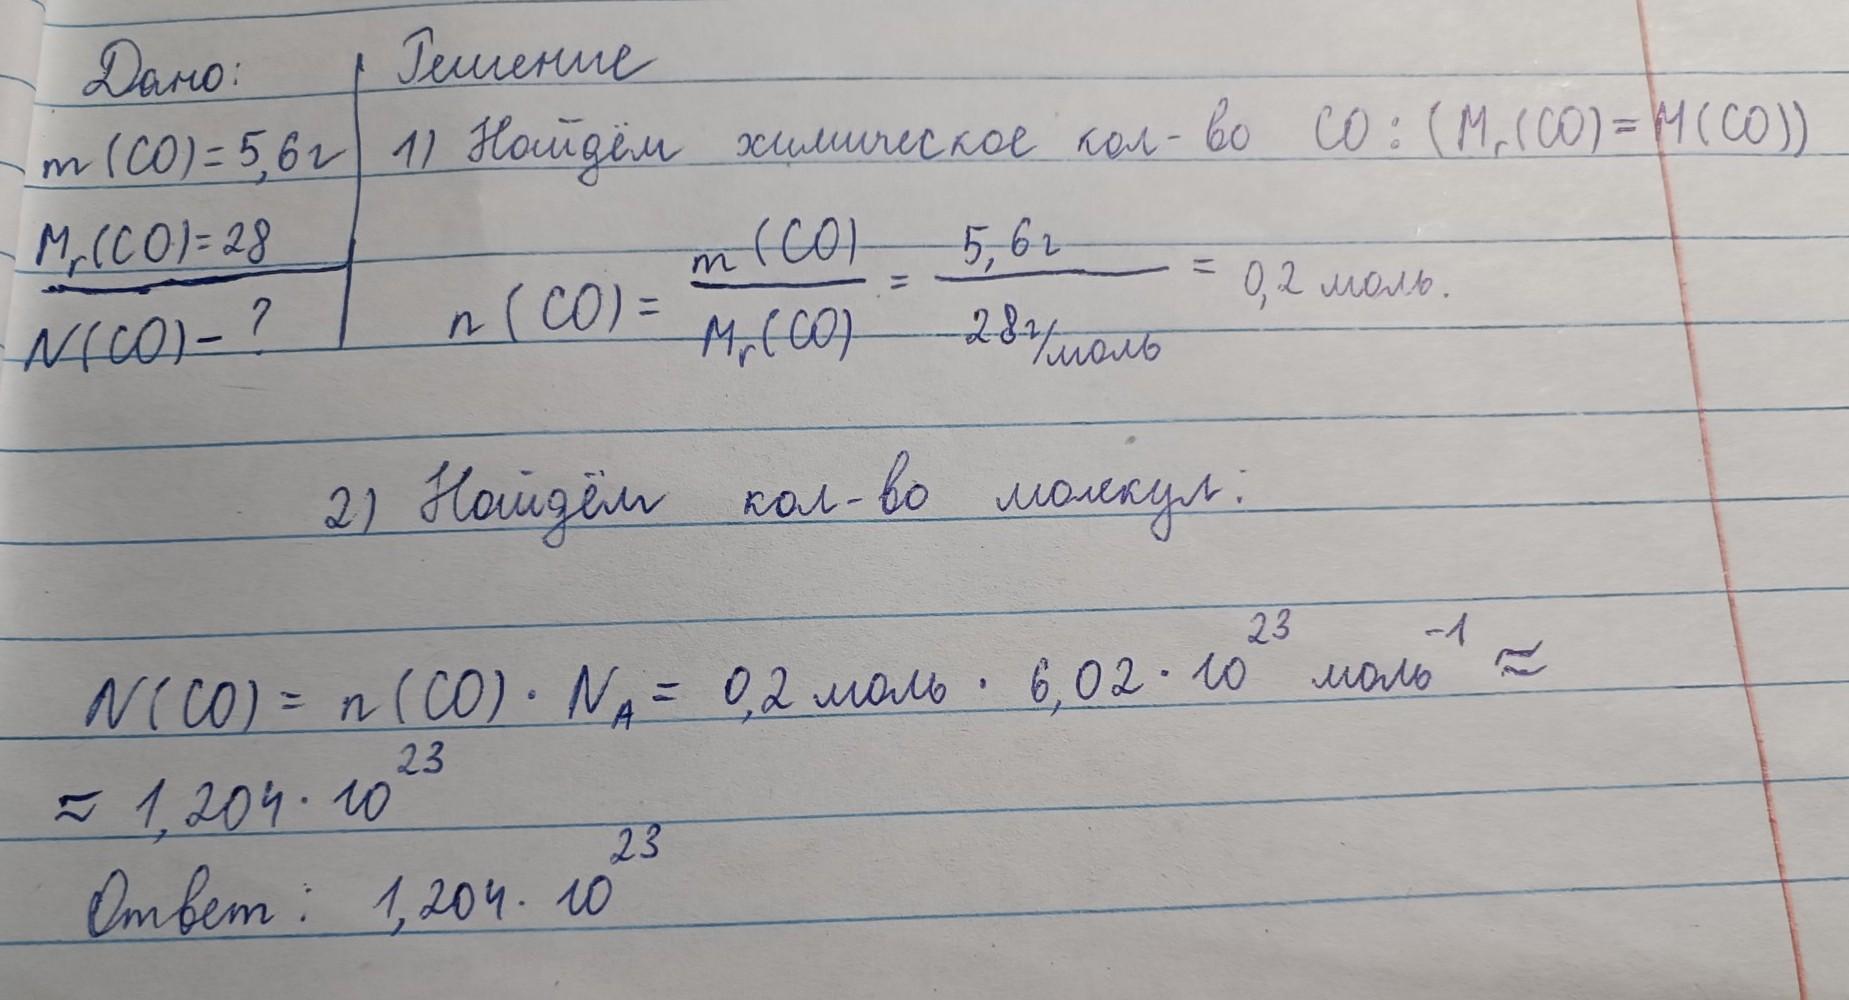 Дано:
m(CO)=5,6г
Mr(CO)=28
N(CO)-?
Решение
1) Найдём химическое кол-во CO: (Mr(CO)=M(CO))
n(CO)= m(CO)/Mr(CO) = 5,6г/28г/моль = 0,2 моль.
2) Найдём кол-во молекул:
N(CO) = n(CO) · N_A = 0,2 моль · 6,02 · 10^23 моль^-1 ≈
≈ 1,204 · 10^23
Ответ: 1,204 · 10^23